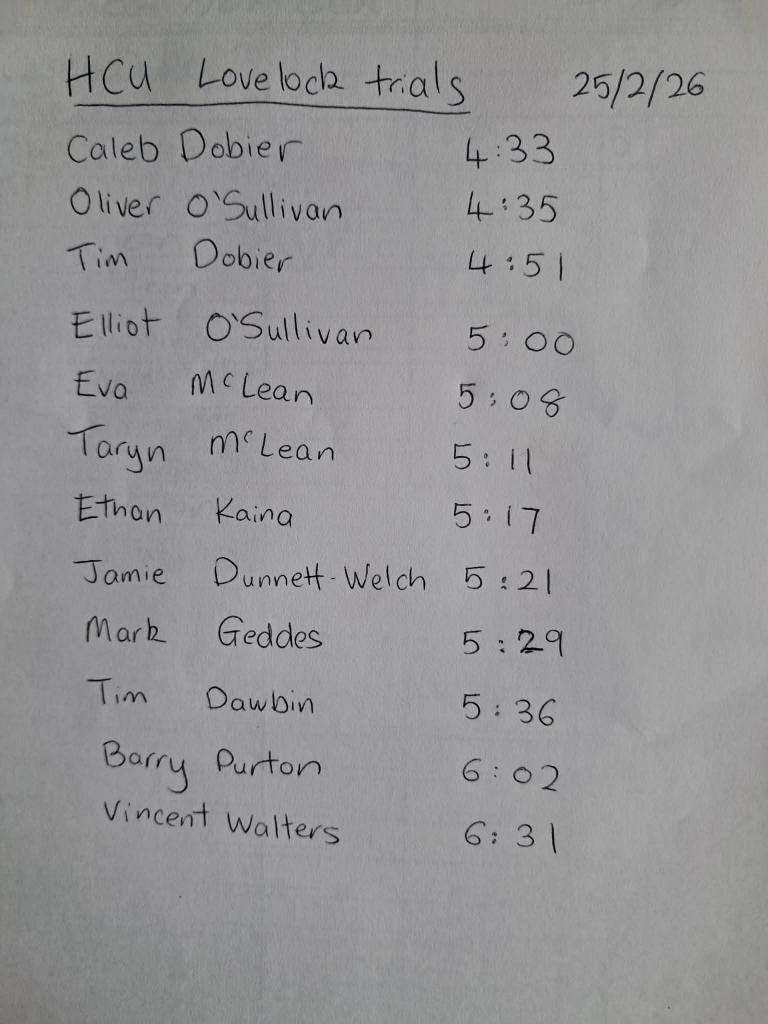 HCU Lovelock trials 25/2/26
Caleb Dobier 4:33
Oliver O'Sullivan 4:35
Tim Dobier 4:51
Elliot O'Sullivan 5:00
Eva McLean 5:08
Taryn McLean 5:11
Ethan Kaina 5:17
Jamie Dunnett-Welch 5:21
Mark Geddes 5:29
Tim Dawbin 5:36
Barry Purton 6:02
Vincent Walters 6:31